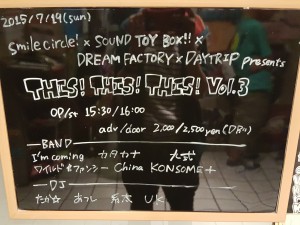 2015/7/19(sun)
Smile Circle! × SOUND TOY BOX!! ×
DREAM FACTORY × DAYTRIP presents
THIS! THIS! THIS! Vol.3
OP/st 15:30/16:00
adv/door 2,000/2,500yen (D別)
BAND
I'm coming カタカナ
ワイルド ファンシー China KONSOME+
DJ
たか☆ あつし UK